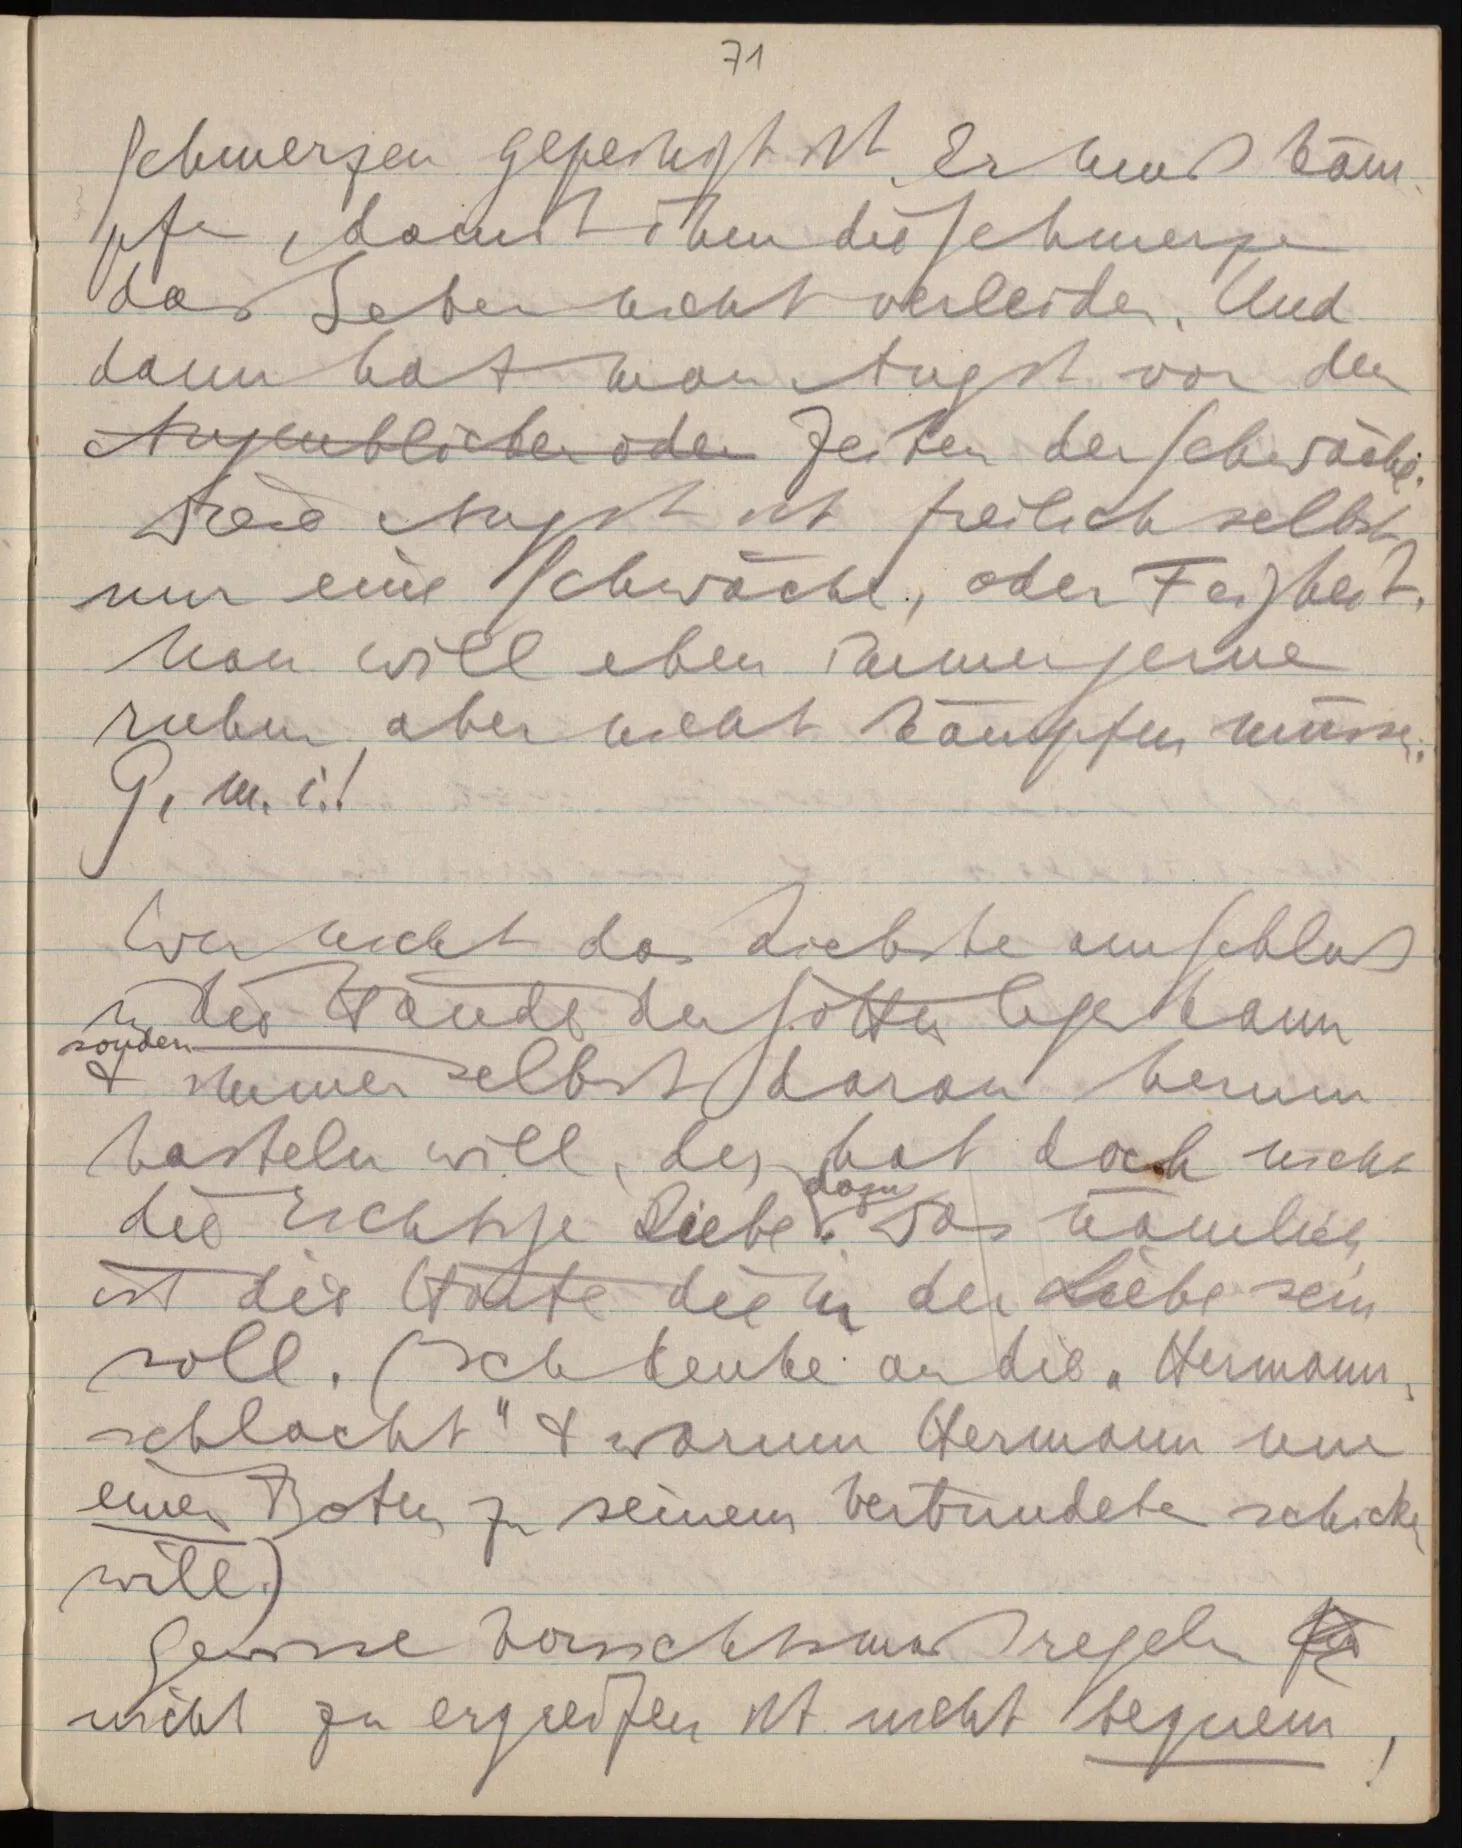 71
Schmerzen gepeinigt ist. Er muß käm-
pfen, damit ihm die Schmerzen
das Leben nicht verleiden. Und
dann hat man Angst vor den
Augenblicken oder Zeiten der Schwäche.
Diese Angst ist freilich selbst
nur eine Schwäche, oder Feigheit.
Man will eben immer gerne
ruhen, aber nicht kämpfen müssen.
G. m. i.!
Wer nicht das Liebste am Schluß
in die Hände der Götter legen kann
sondern
& immer selbst daran herum
basteln will, der hat doch nicht
die richtige Liebe dazu. Das nämlich
ist die Härte die in der Liebe sein
soll. (Ich denke an die „Hermann-
schlacht" & warum Hermann nur
einen Boten zu seinem Verbündeten schicken
will.)
Gewisse Vorsichtsmaßregeln
nicht zu ergreifen ist nicht bequem,